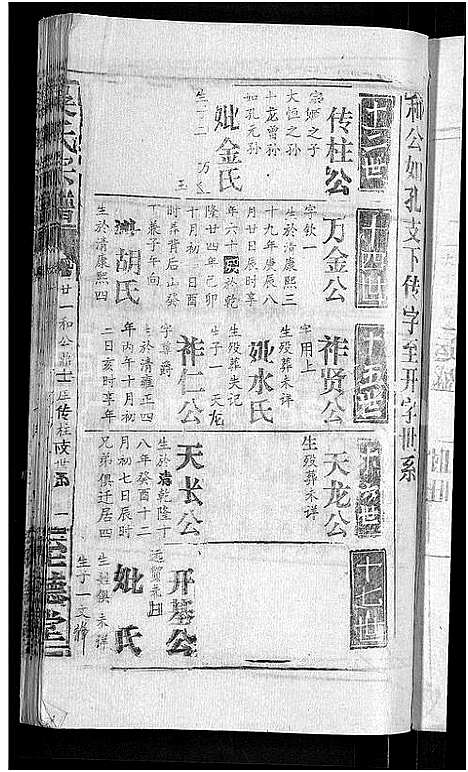 和公如孔支下传字至开字卅系
十三世
传柱公
宗姬之子
大恒之孙
十龙曾孙
如孔元孙
妣金氏
生子二
十四世
万金公
字钦一
生於清康熙三
十九年庚辰八
月廿日辰时享
年六十歿於乾
隆廿四年己卯
十月初二日酉
时葬背后山癸
丁兼子午向
妣胡氏
生於清康熙四
十五世
祚贤公
字用上
生歿葬未详
妣水氏
生歿葬失记
生子一天龙
祚仁公
字尊爵
生於清雍正四
年丙午十月初
二日亥时享年
十六世
天龙公
生歿葬未详
天长公
生於清乾隆十
八年癸酉十二
月初七日辰时
兄弟俱迁居四
十七世
开基公
妣 氏
生歿俱未详
生子一文
氏宗谱
廿一和公
传柱
世系
一
至德堂